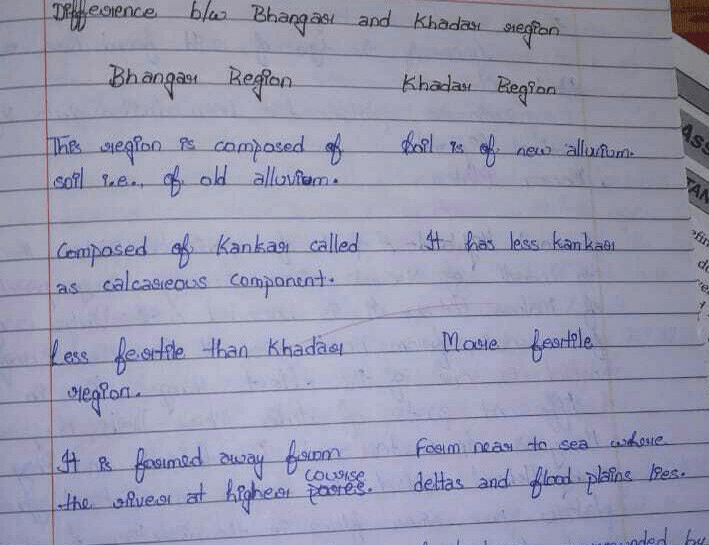 Difference b/w Bhangar and Khadar region
Bhangar Region Khadar Region
This region is composed of soil is of new alluvium.
soil i.e., of old alluvium.
Composed of Kankar called It has less kankar
as calcareous component.
Less fertile than Khadar More fertile
region.
It is formed away from Form near to sea where
course
the river at higher deltas and flood plains lies.
ASS
TAN